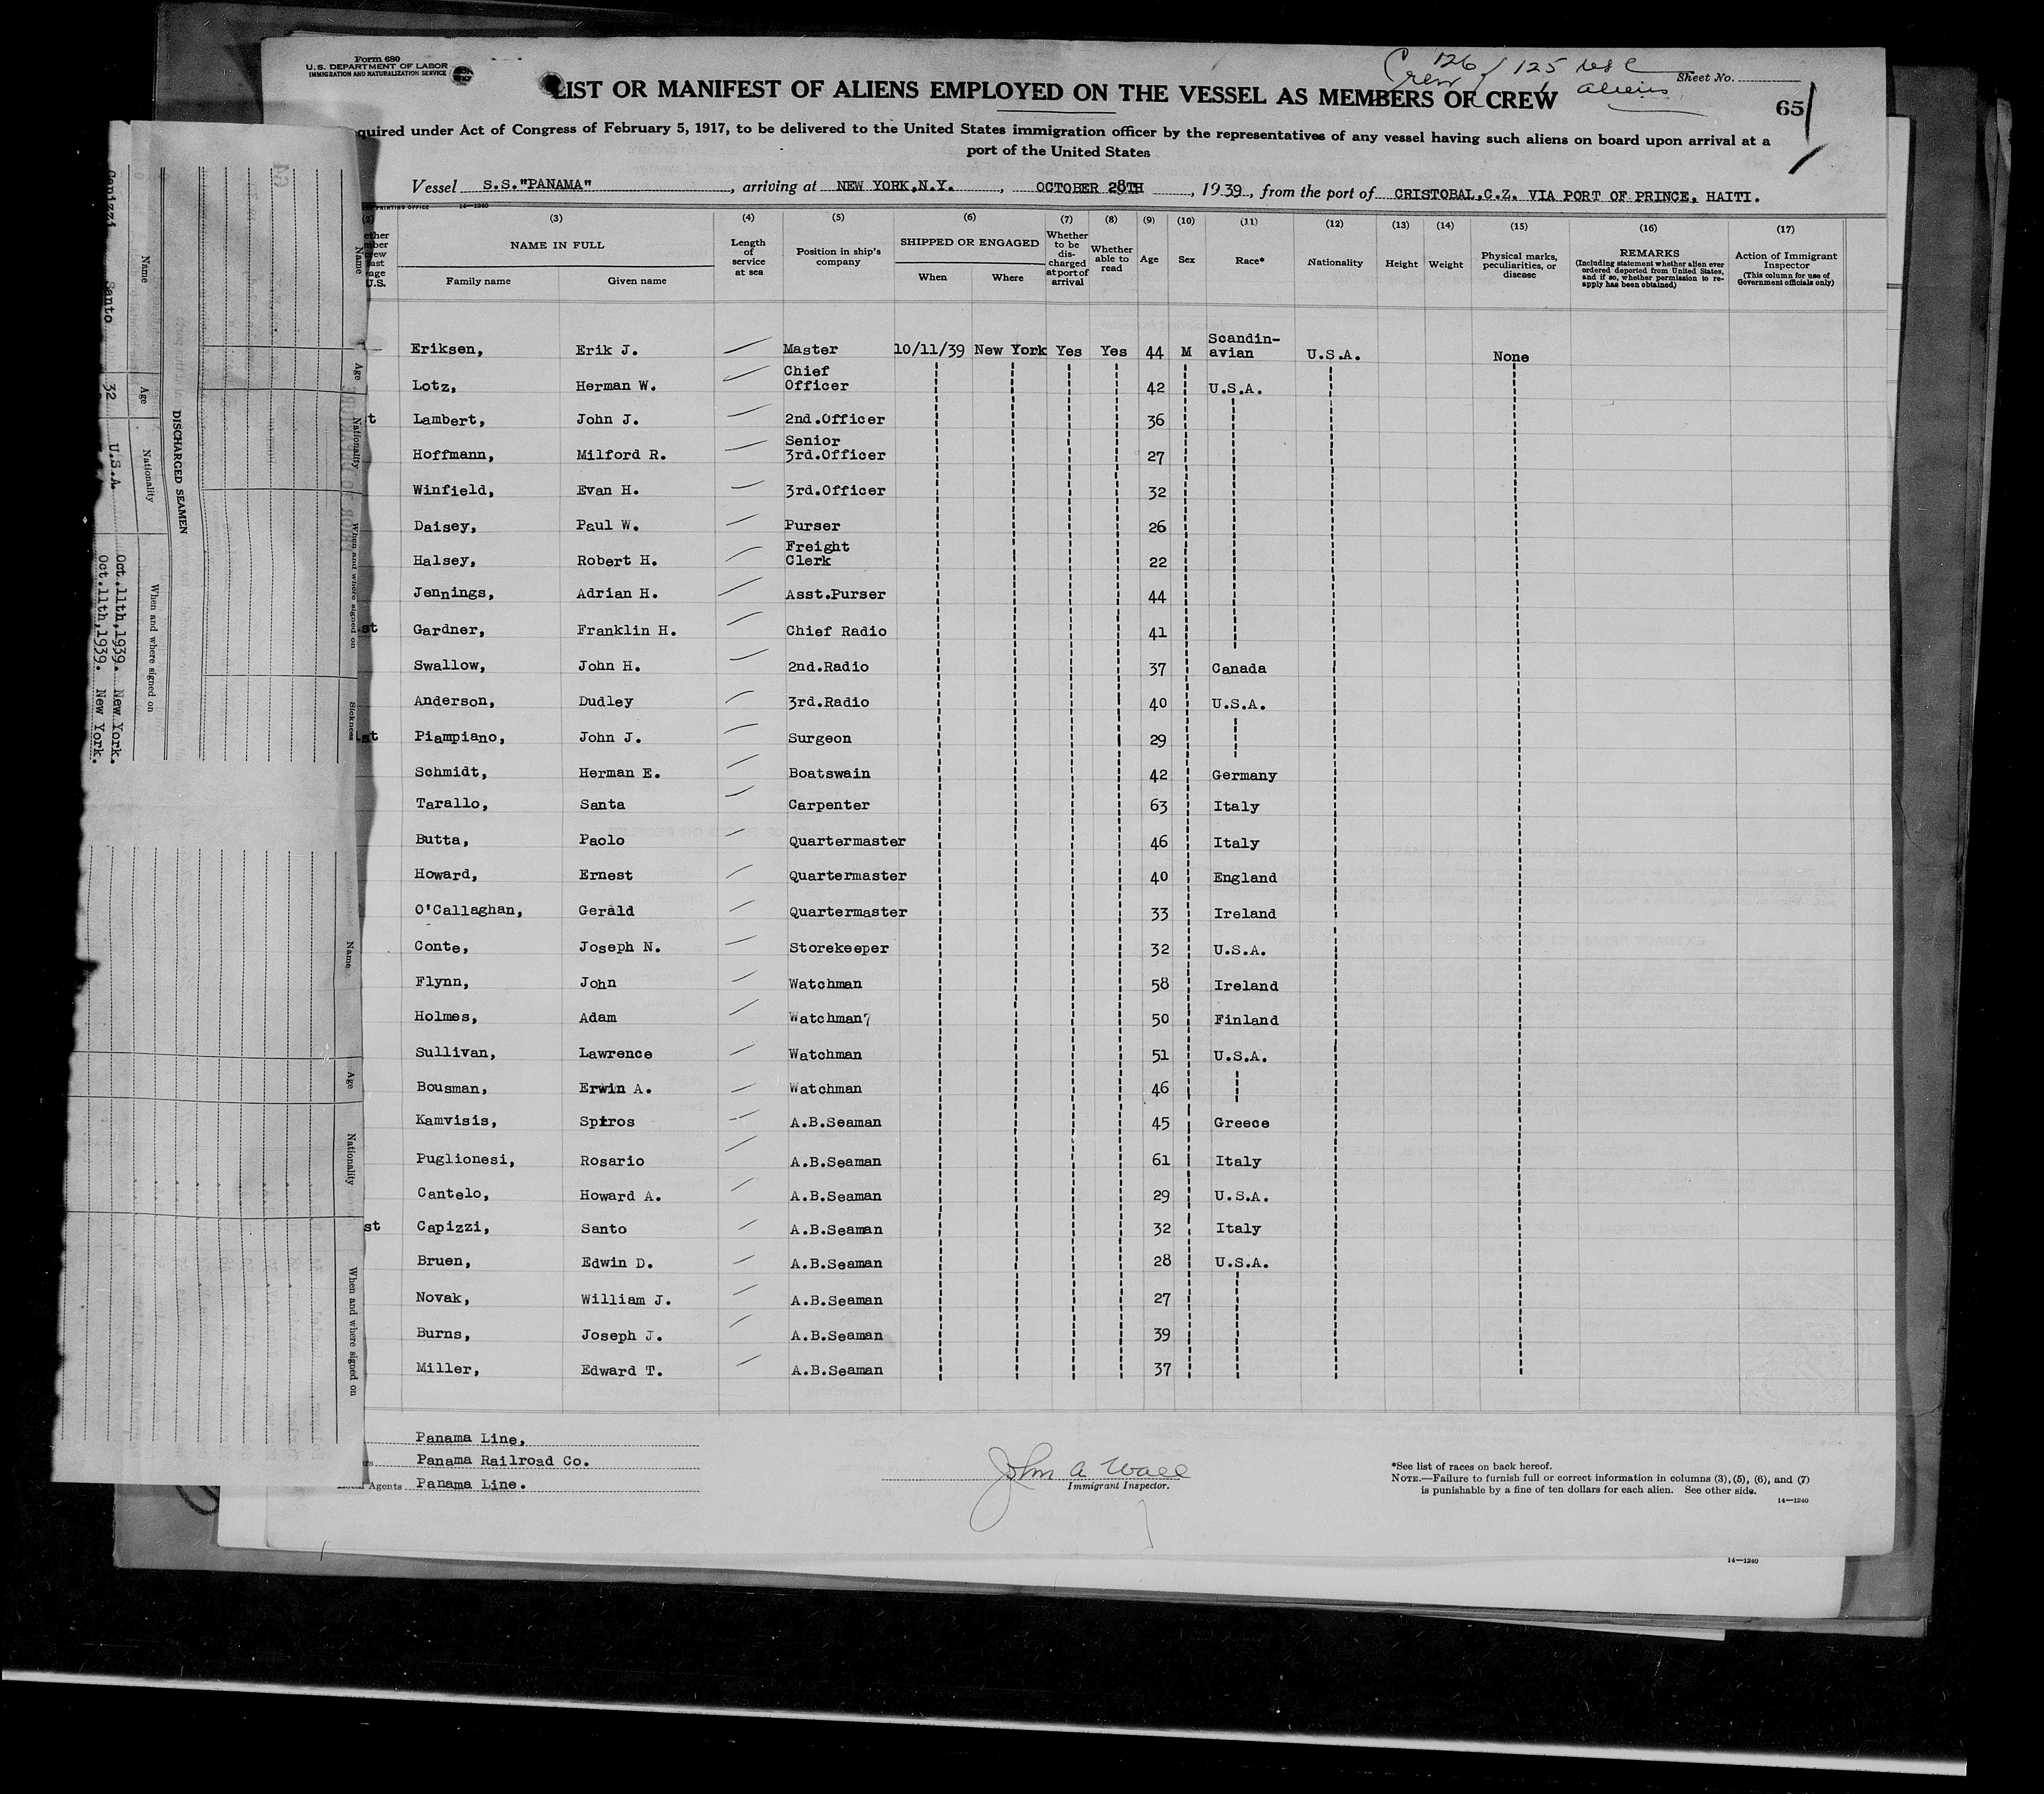 Form 680
U.S. DEPARTMENT OF LABOR
IMMIGRATION AND NATURALIZATION SERVICE
Crew 126 / 125
aliens
Sheet No.
65
LIST OR MANIFEST OF ALIENS EMPLOYED ON THE VESSEL AS MEMBERS OF CREW
quired under Act of Congress of February 5, 1917, to be delivered to the United States immigration officer by the representatives of any vessel having such aliens on board upon arrival at a
port of the United States
Vessel S.S."PANAMA", arriving at NEW YORK,N.Y., OCTOBER 28TH, 1939, from the port of CRISTOBAL,C.Z. VIA PORT OF PRINCE, HAITI.
PRINTING OFFICE 14—1240
(2) (3) (4) (5) (6) (7) (8) (9) (10) (11) (12) (13) (14) (15) (16) (17)
NAME IN FULL
Family name Given name
Length of service at sea
Position in ship's company
SHIPPED OR ENGAGED
When Where
Whether to be discharged at port of arrival
Whether able to read
Age
Sex
Race*
Nationality
Height
Weight
Physical marks, peculiarities, or disease
REMARKS
(Including statement whether alien ever ordered deported from United States, and if so, whether permission to reapply has been obtained)
Action of Immigrant Inspector
(This column for use of Government officials only)
Eriksen, Erik J. Master 10/11/39 New York Yes Yes 44 M Scandin-avian U.S.A. None
Lotz, Herman W. Chief Officer 42 U.S.A.
Lambert, John J. 2nd.Officer 36
Hoffmann, Milford R. Senior 3rd.Officer 27
Winfield, Evan H. 3rd.Officer 32
Daisey, Paul W. Purser 26
Halsey, Robert H. Freight Clerk 22
Jennings, Adrian H. Asst.Purser 44
st Gardner, Franklin H. Chief Radio 41
Swallow, John H. 2nd.Radio 37 Canada
Anderson, Dudley 3rd.Radio 40 U.S.A.
st Piampiano, John J. Surgeon 29
Schmidt, Herman E. Boatswain 42 Germany
Tarallo, Santa Carpenter 63 Italy
Butta, Paolo Quartermaster 46 Italy
Howard, Ernest Quartermaster 40 England
O'Callaghan, Gerald Quartermaster 33 Ireland
Conte, Joseph N. Storekeeper 32 U.S.A.
Flynn, John Watchman 58 Ireland
Holmes, Adam Watchman7 50 Finland
Sullivan, Lawrence Watchman 51 U.S.A.
Bousman, Erwin A. Watchman 46
Kamvisis, Spiros A.B.Seaman 45 Greece
Puglionesi, Rosario A.B.Seaman 61 Italy
Cantelo, Howard A. A.B.Seaman 29 U.S.A.
st Capizzi, Santo A.B.Seaman 32 Italy
Bruen, Edwin D. A.B.Seaman 28 U.S.A.
Novak, William J. A.B.Seaman 27
Burns, Joseph J. A.B.Seaman 39
Miller, Edward T. A.B.Seaman 37
Panama Line,
Panama Railroad Co.
Agents Panama Line.
John A Wall
Immigrant Inspector.
*See list of races on back hereof.
NOTE.—Failure to furnish full or correct information in columns (3), (5), (6), and (7)
is punishable by a fine of ten dollars for each alien. See other side.
14—1240
14—1240
Name Age Nationality When and where signed on Sickness
DISCHARGED SEAMEN
Name Age Nationality When and where signed on
U.S.A. Oct.11th,1939. New York.
Capizzi Santo 32 Oct.11th,1939. New York.
Name Age Nationality When and where signed on